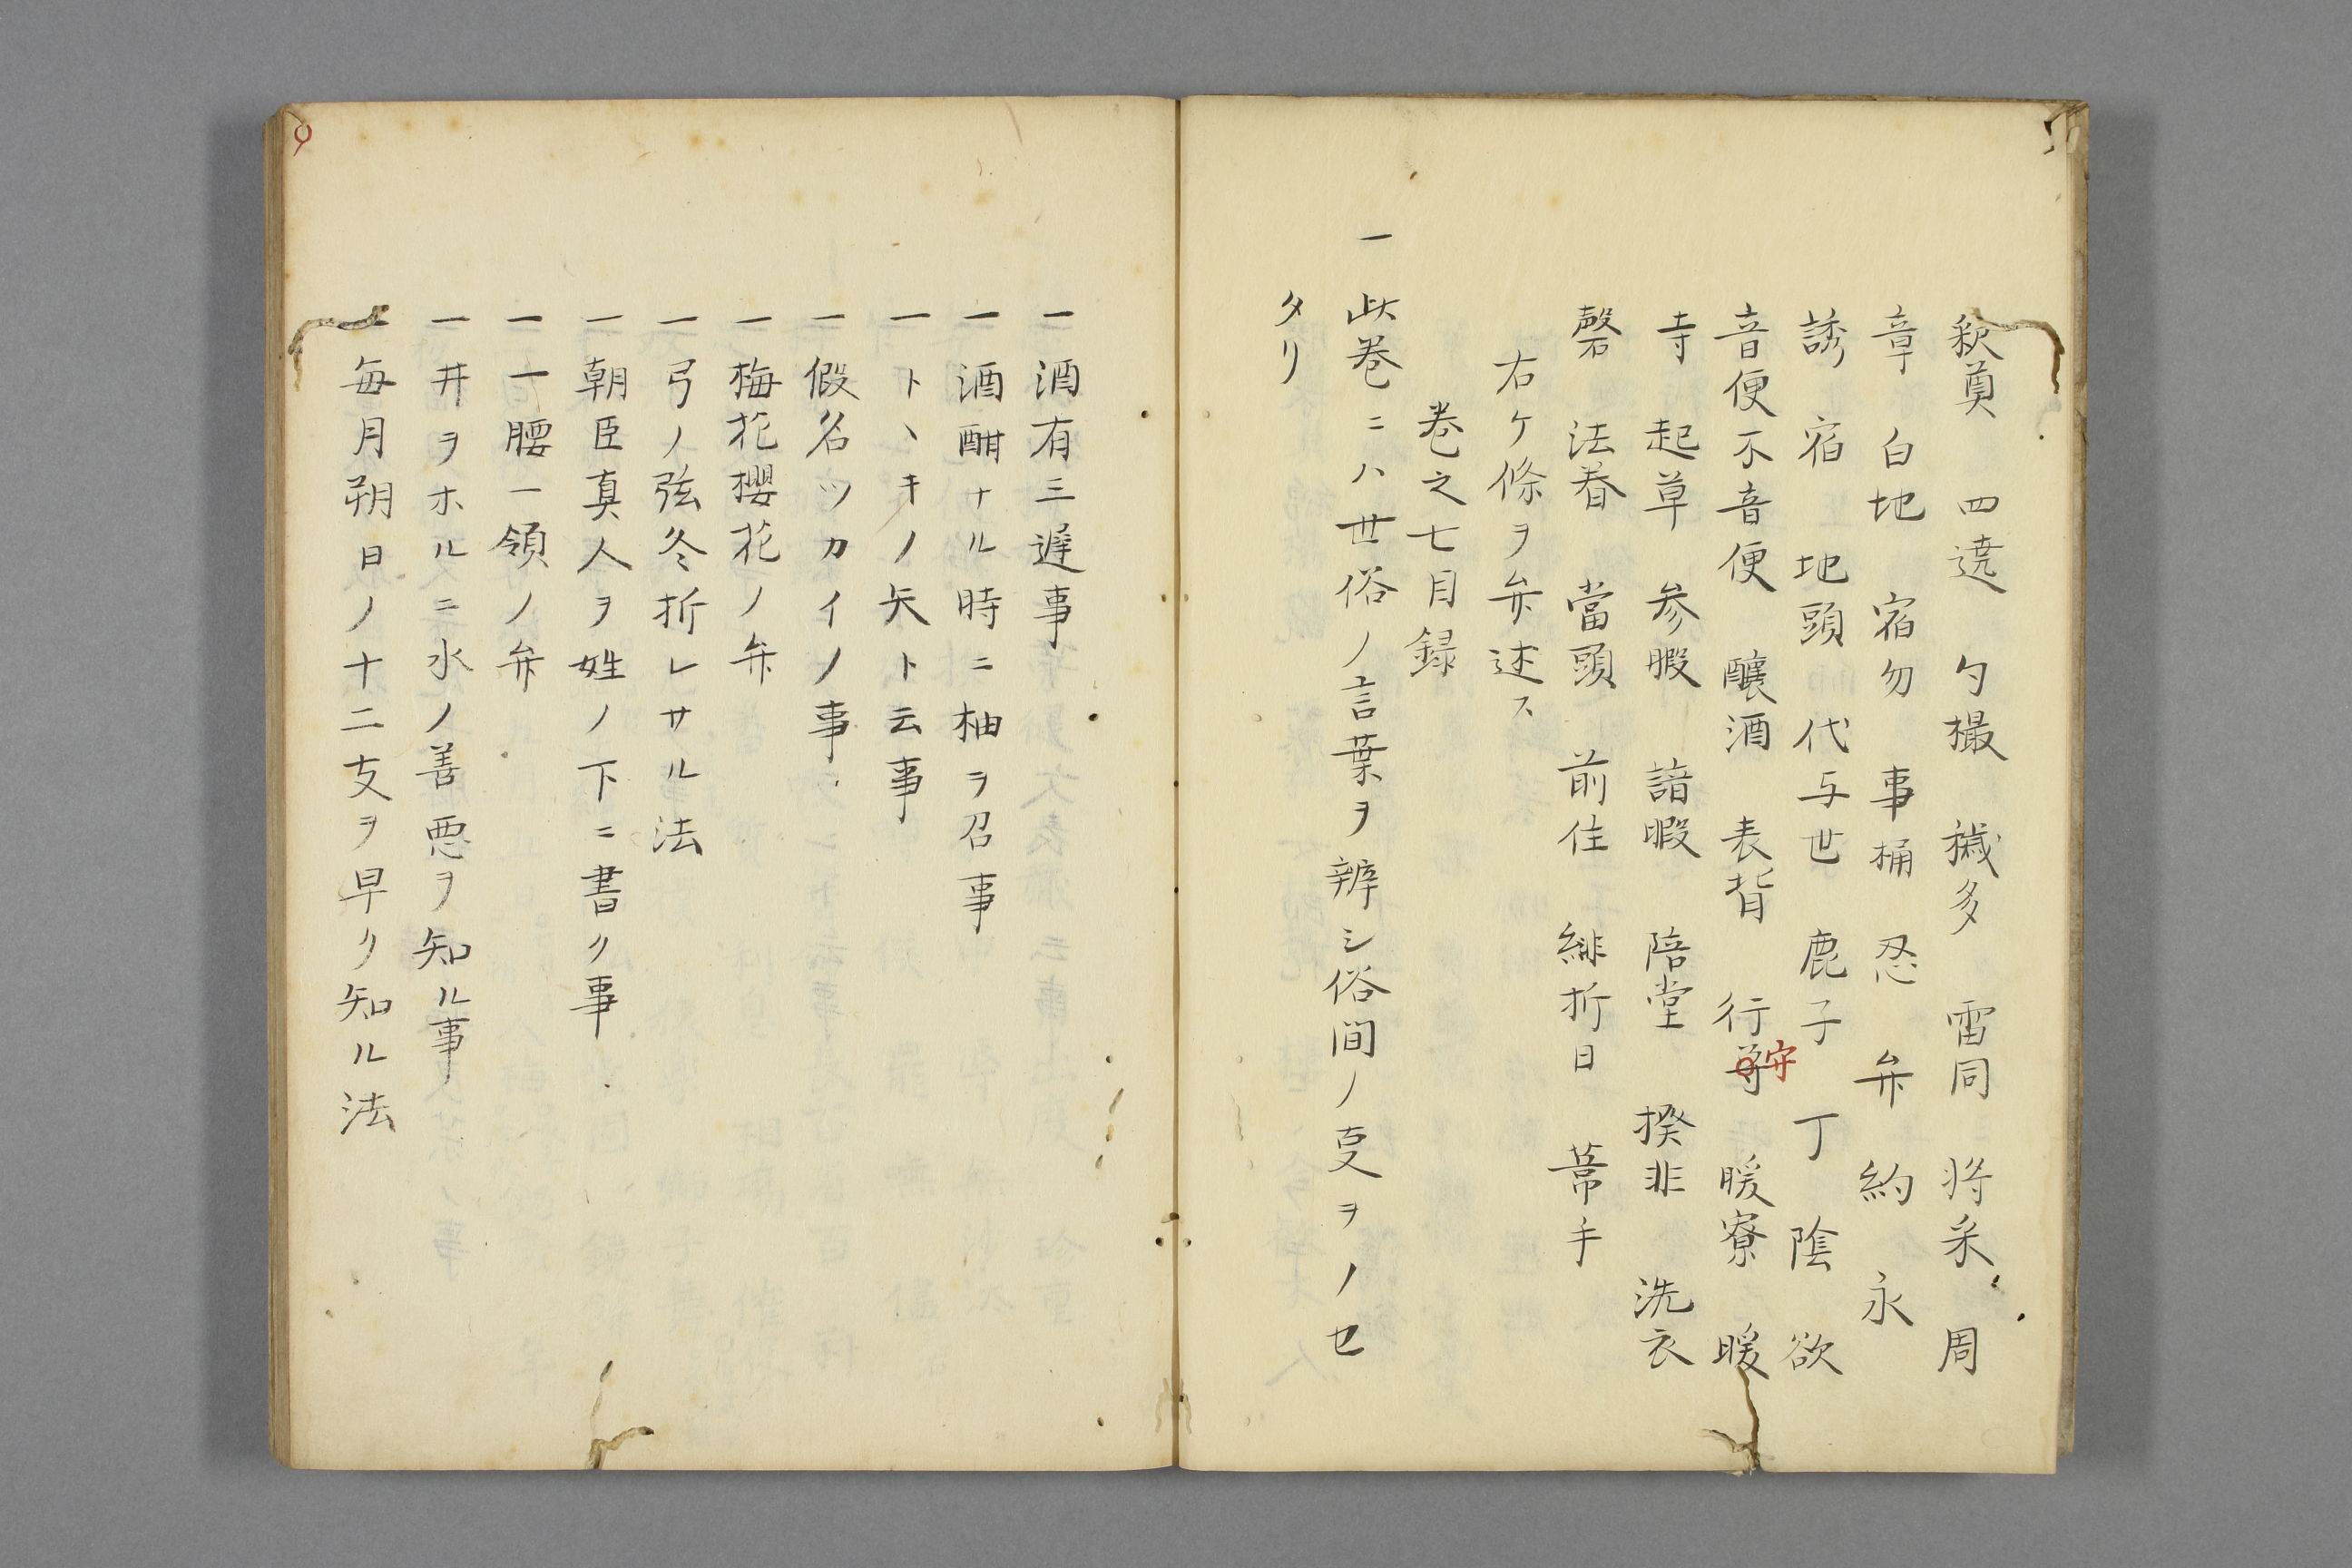 釈奠 四遶 勺撮 穢多 雷同 将来 周
章 白地 宿勿 事桶 忍 弁 約 永
誘 宿 地頭 代与世 鹿子 丁 陰 欲
音便不音便 釀酒 表背 行守 暖寮 暖
寺 起草 参暇 諳暇 陪堂 揆非 洗衣
磬 法眷 當頭 前住 緋折日 蔕手
右ケ條ヲ弁述ス
巻之七目録
一此巻ニハ世俗ノ言葉ヲ辨シ俗間ノ叓ヲノセ
タリ
一酒有三遅事
一酒酣ナル時ニ柚ヲ召事
一トヽキノ矢ト云事
一假名ツカイノ事
一梅花櫻花ノ弁
一弓ノ弦冬折レサル法
一朝臣真人ヲ姓ノ下ニ書ク事
一一腰一領ノ弁
一井ヲホルニ水ノ善悪ヲ知ル事
一毎月朔日ノ十二支ヲ早ク知ル法